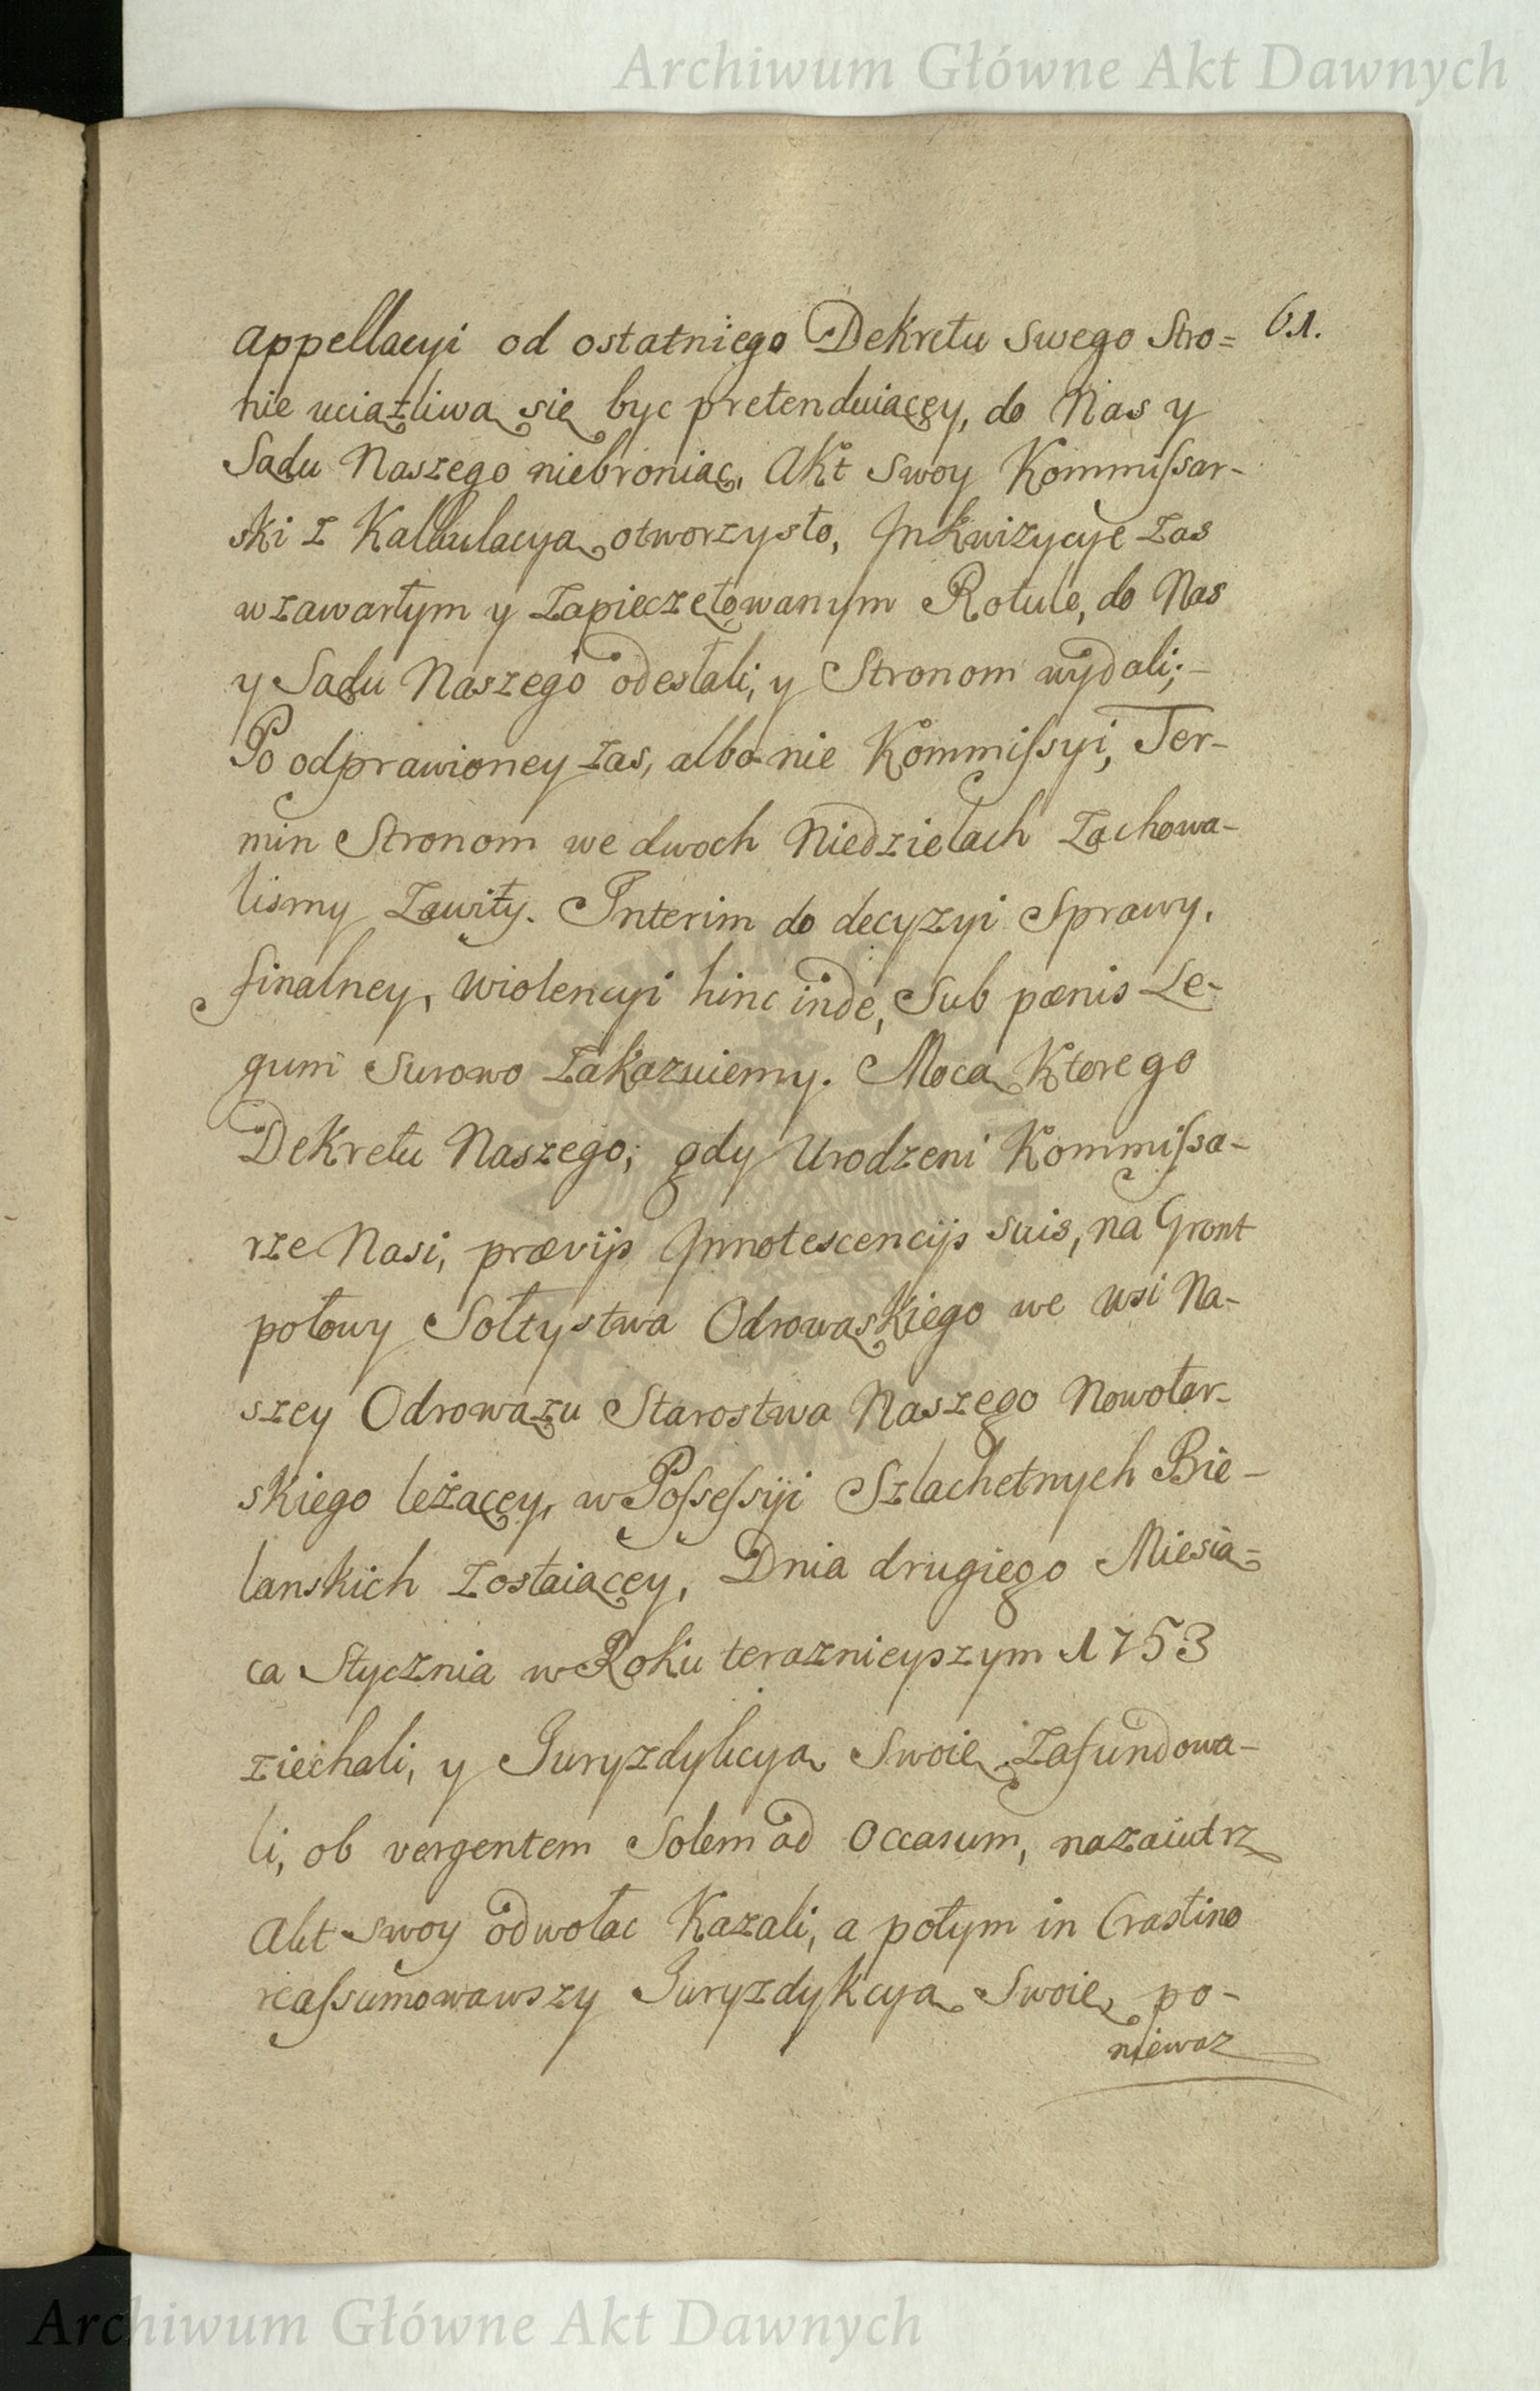 Archiwum Główne Akt Dawnych
61.
appellacyi od ostatniego Dekretu Swego Stro=
nie uciążliwą się byc pretenduiącey, do Nas y
Sądu Naszego niebroniąc, Akt Swoy Kommissar-
ski z Kalkulacyą otworzysto, Inkwizycye zas
w zawartym y zapieczętowanym Rotule, do Nas
y Sądu Naszego odesłali, y Stronom wydali;-
Po odprawioney zas, albo nie Kommissyi, Ter-
min Stronom we dwoch Niedzielach zachowa-
lismy Zawity. Interim do decyzyi Sprawy,
finalney, wiolencyi hinc inde, Sub pœnis Le-
gum Surowo zakazuiemy. Mocą Ktorego
Dekretu Naszego; gdy Urodzeni Kommissa-
rze Nasi, prævijs Innotescencijs suis, na Gront
połowy Sołtystwa Odrowąskiego we wsi Na-
szey Odrowążu Starostwa Naszego Nowotar-
skiego leżącey, w Possessyi Szlachetnych Bie-
lanskich zostaiącey, Dnia drugiego Miesią=
ca Stycznia w Roku teraznieyszym 1753
ziechali, y Juryzdykcyą Swoię zafundowa-
li, ob vergentem Solem ad Occasum, nazaiutrz
Akt Swoy odwołac Kazali, a potym in Crastino
reassumowawszy Juryzdykcyą Swoię, po-
niewaz
Archiwum Główne Akt Dawnych